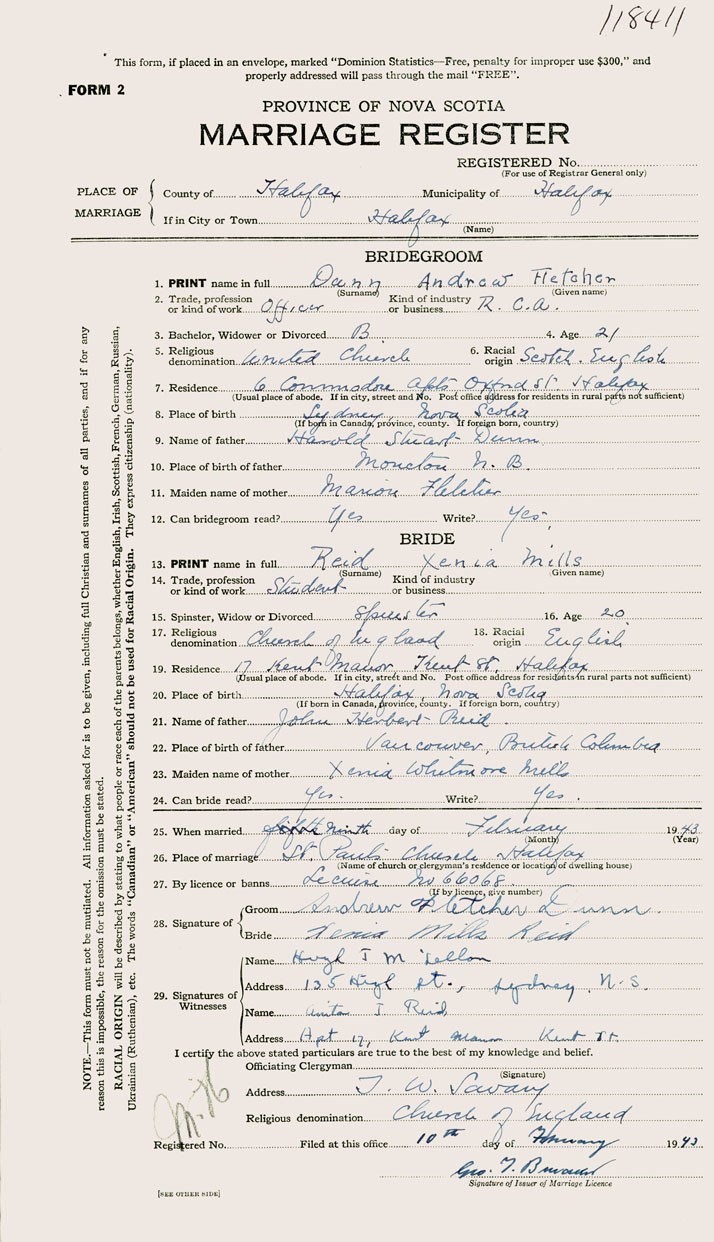 118411
This form, if placed in an envelope, marked "Dominion Statistics—Free, penalty for improper use $300," and
properly addressed will pass through the mail "FREE".
FORM 2
PROVINCE OF NOVA SCOTIA
MARRIAGE REGISTER
REGISTERED No.
(For use of Registrar General only)
PLACE OF MARRIAGE
County of Halifax Municipality of Halifax
If in City or Town Halifax
(Name)
BRIDEGROOM
1. PRINT name in full Dunn Andrew Fletcher
(Surname) (Given name)
2. Trade, profession or kind of work Officer Kind of industry or business R. C. A.
3. Bachelor, Widower or Divorced B. 4. Age 21
5. Religious denomination United Church 6. Racial origin Scotch. English
7. Residence 6 Commodore Apts Oxford St Halifax
(Usual place of abode. If in city, street and No. Post office address for residents in rural parts not sufficient)
8. Place of birth Sydney, Nova Scotia
(If born in Canada, province, county. If foreign born, country)
9. Name of father Harold Stuart Dunn
10. Place of birth of father Moncton N. B.
11. Maiden name of mother Marion Fletcher
12. Can bridegroom read? Yes Write? Yes.
BRIDE
13. PRINT name in full Reid Xenia Mills
(Surname) (Given name)
14. Trade, profession or kind of work Student Kind of industry or business
15. Spinster, Widow or Divorced Spinster 16. Age 20
17. Religious denomination Church of England 18. Racial origin English
19. Residence 17 Kent Manor, Kent St, Halifax
(Usual place of abode. If in city, street and No. Post office address for residents in rural parts not sufficient)
20. Place of birth Halifax, Nova Scotia
(If born in Canada, province, county. If foreign born, country)
21. Name of father John Herbert Reid.
22. Place of birth of father Vancouver, British Columbia
23. Maiden name of mother Xenia Whitmore Mills
24. Can bride read? Yes. Write? Yes.
25. When married ninth day of February 1943
(Month) (Year)
26. Place of marriage St. Paul's Church Halifax
(Name of church or clergyman's residence or location of dwelling house)
27. By licence or banns License No 66068
(If by licence, give number)
28. Signature of
Groom Andrew Fletcher Dunn.
Bride Xenia Mills Reid
29. Signatures of Witnesses
Name Hugh J
Address 135 High St., Sydney, N.S.
Name J. Reid
Address Apt 17, Kent Manor Kent St.
I certify the above stated particulars are true to the best of my knowledge and belief.
Officiating Clergyman
(Signature)
Address T. W. Savary
Religious denomination Church of England
Registered No. Filed at this office 10th day of February 1943
Geo. T.
Signature of Issuer of Marriage Licence
[SEE OTHER SIDE]
NOTE.—This form must not be mutilated. All information asked for is to be given, including full Christian and surnames of all parties, and if for any
reason this is impossible, the reason for the omission must be stated.
RACIAL ORIGIN will be described by stating to what people or race each of the parents belongs, whether English, Irish, Scottish, French, German, Russian,
Ukrainian (Ruthenian), etc. The words "Canadian" or "American" should not be used for Racial Origin. They express citizenship (nationality).